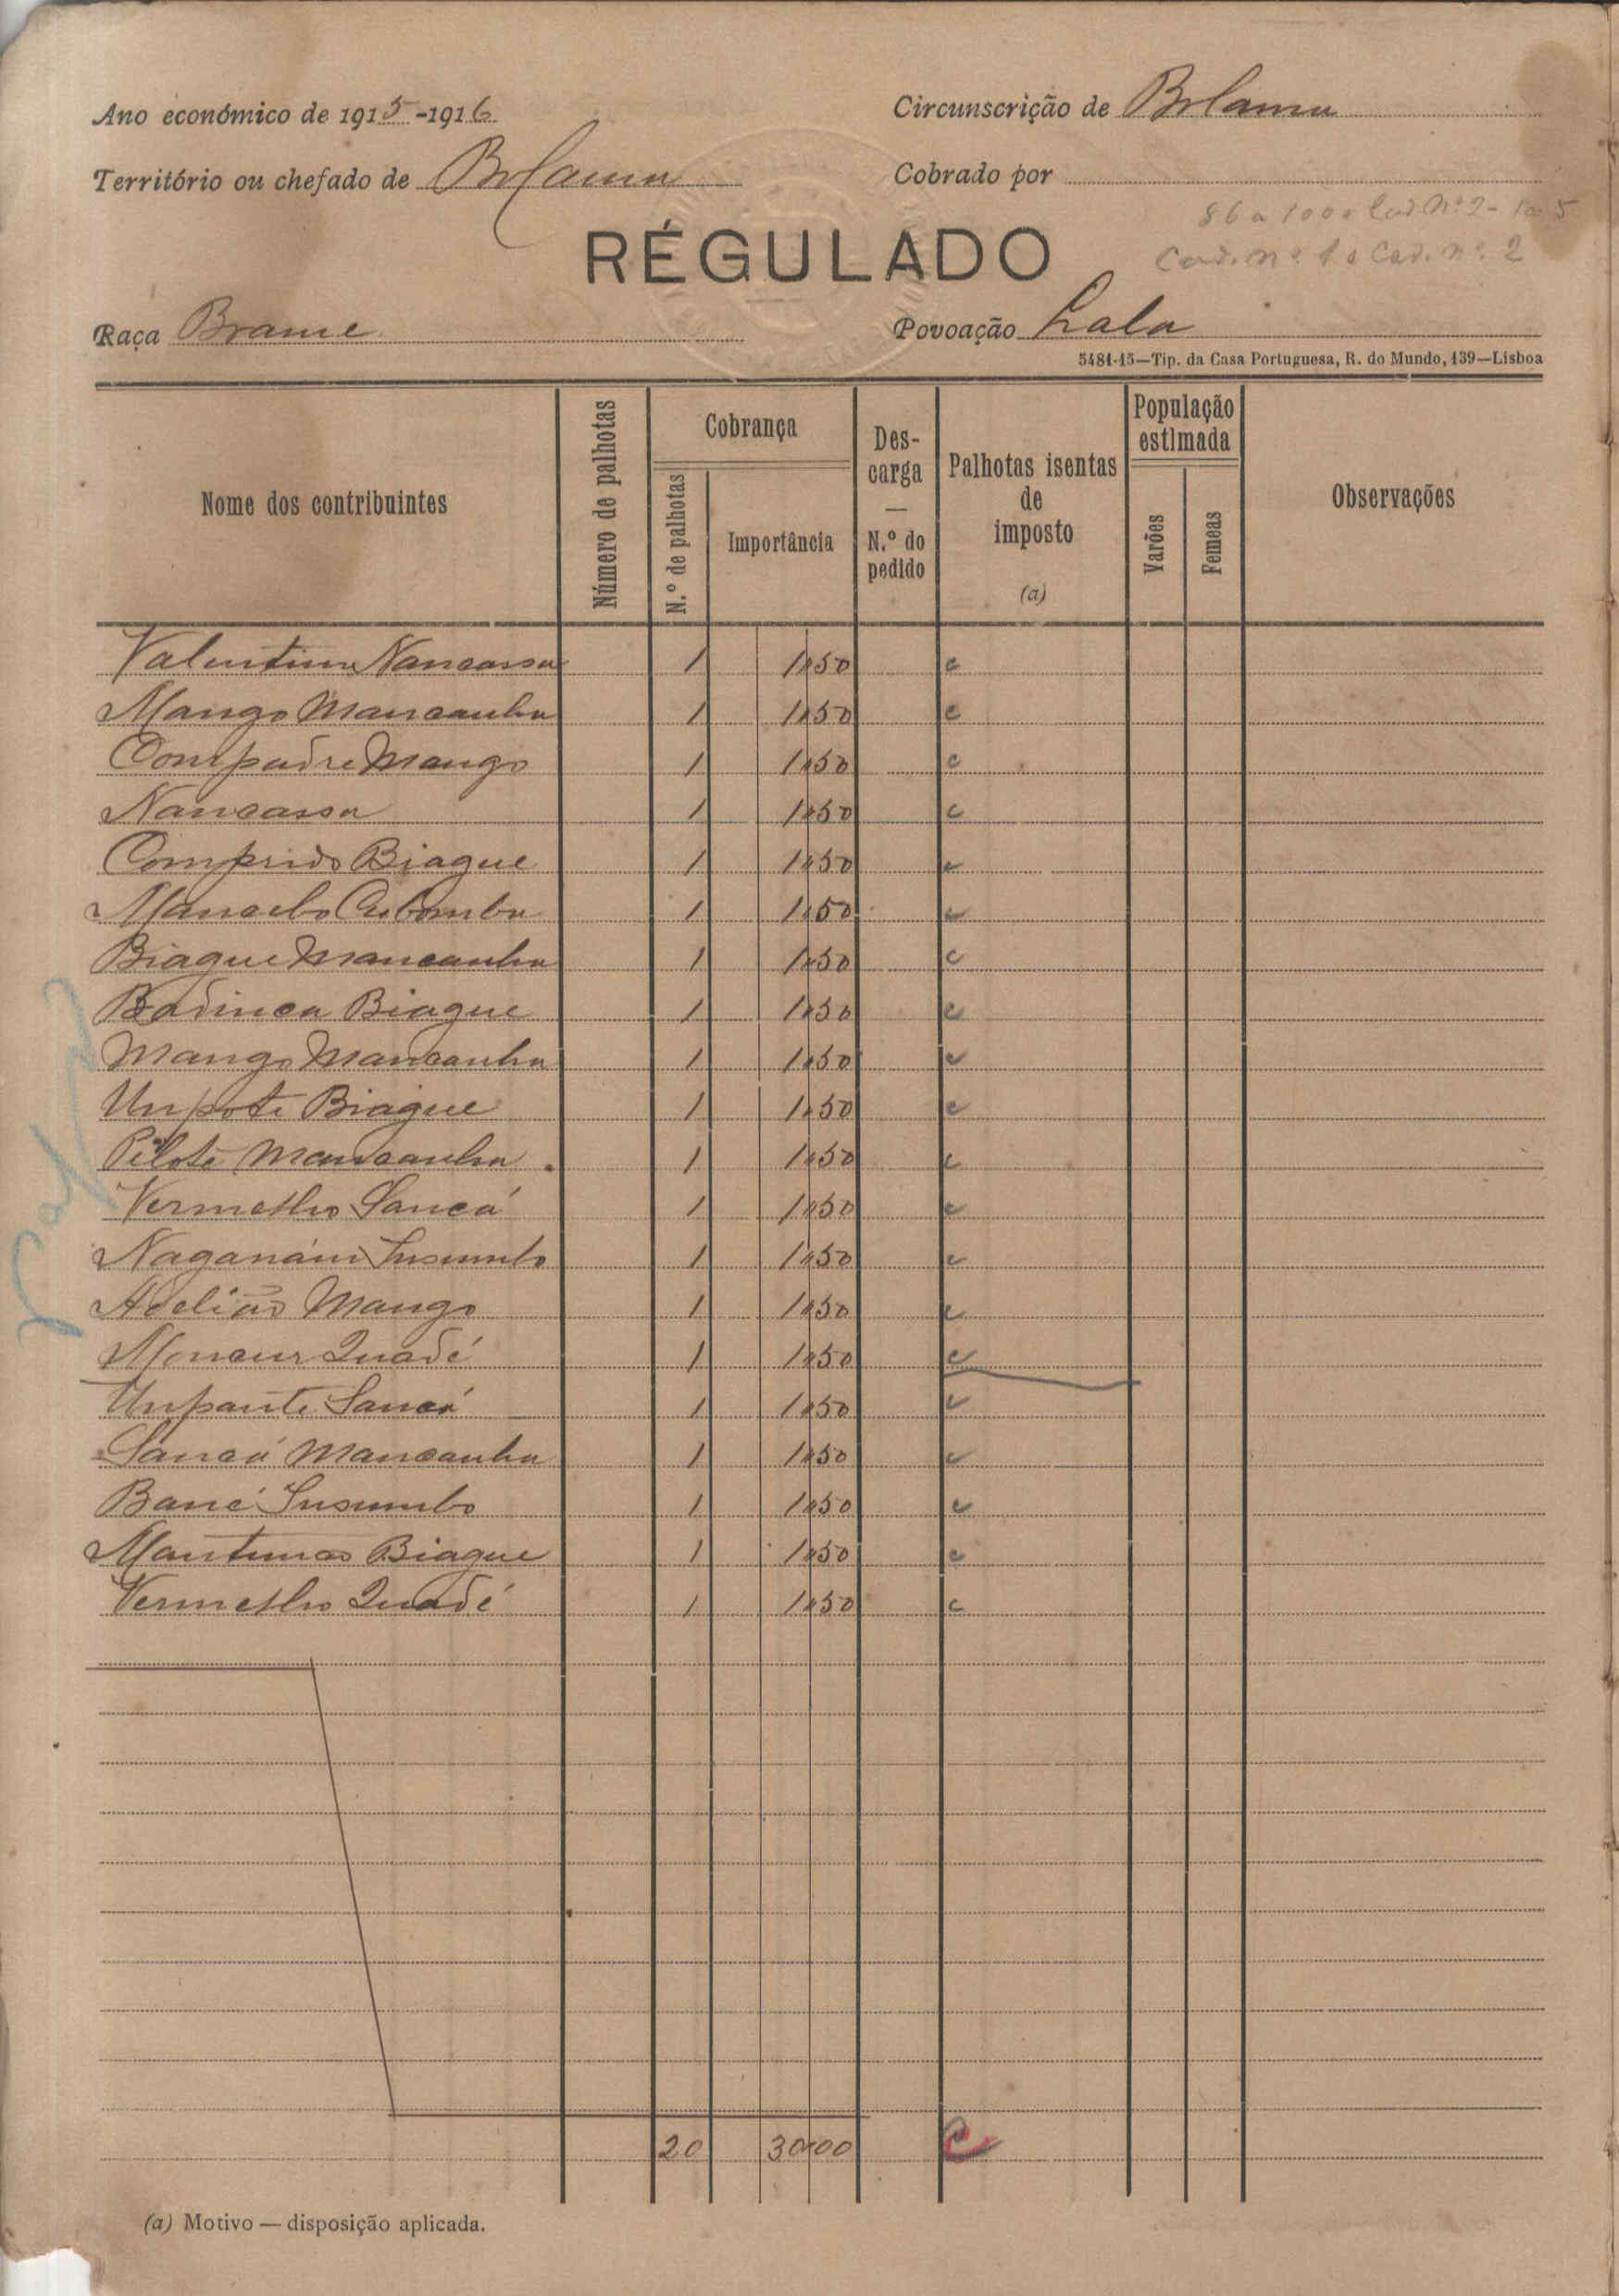 Ano económico de 1915-1916
Circunscrição de Bolama
Território ou chefado de Bolama
Cobrado por
86 a 100 e Cad. Nº 2 - 1 a 5
Cad. nº 1 e Cad. nº 2
RÉGULADO
Raça Brame
Povoação Lala
5481-15—Tip. da Casa Portuguesa, R. do Mundo, 139—Lisboa
Nome dos contribuintes
Número de palhotas
Cobrança
N.º de palhotas
Importância
Descarga — N.º do pedido
Palhotas isentas de imposto (a)
População estimada
Varões
Femeas
Observações
Valentim Nancassa 1 1$50 c
Mango Mancanha 1 1$50 c
Compadre Mango 1 1$50 c
Nancassa 1 1$50 c
Comprido Biague 1 1$50 c
1 1$50 c
Biague Mancanha 1 1$50 c
Badinca Biague 1 1$50 c
Mango Mancanha 1 1$50 c
Unpote Biague 1 1$50 c
Pilote Mancanha 1 1$50 c
Vermelho Sancá 1 1$50 c
Insumbo 1 1$50 c
Mango 1 1$50 c
Quadé 1 1$50 c
Unpante Sancá 1 1$50 c
Sancá Mancanha 1 1$50 c
Bané Insumbo 1 1$50 c
Biague 1 1$50 c
Vermelho Quadé 1 1$50 c
20 30$00 C
(a) Motivo — disposição aplicada.